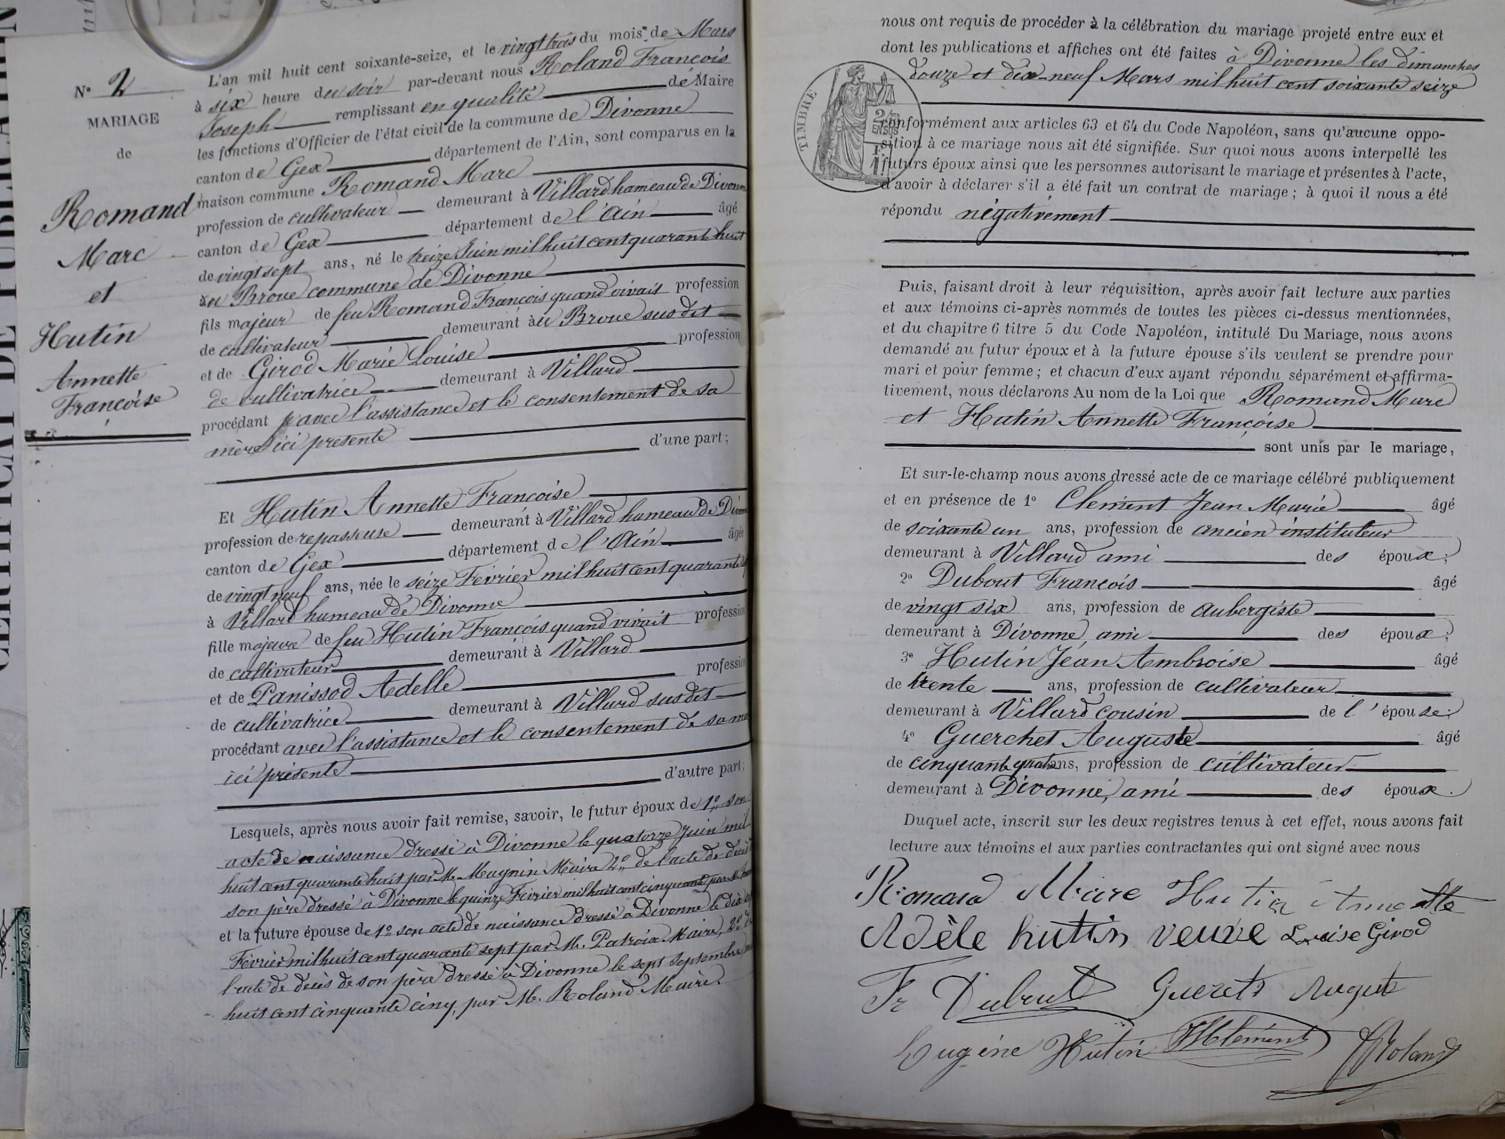 CERTIFICAT DE PUBLICAT
N° 2
MARIAGE
de
Romand
Marc
et
Hutin
Annette
Françoise
L'an mil huit cent soixante-seize, et le vingt trois du mois de Mars
à six heure du soir par-devant nous Roland François
Joseph remplissant en qualité de Maire
les fonctions d'Officier de l'état civil de la commune de Divonne
canton de Gex département de l'Ain, sont comparus en la
maison commune Romand Marc
profession de cultivateur demeurant à Villard hameau de Divonne
canton de Gex département de l'Ain âgé
de vingt sept ans, né le treize Juin mil huit cent quarante huit
au Broue commune de Divonne
fils majeur de feu Romand François quand vivait profession
de cultivateur demeurant au Broue susdit
et de Girod Marie Louise profession
de cultivatrice demeurant à Villard
procédant avec l'assistance et le consentement de sa
mère ici présente d'une part;
Et Hutin Annette Françoise
profession de repasseuse demeurant à Villard hameau de Divonne
canton de Gex département de l'Ain âgée
de vingt neuf ans, née le seize Février mil huit cent quarante
à Villard hameau de Divonne
fille majeure de feu Hutin François quand vivait profession
de cultivateur demeurant à Villard
et de Panissod Adelle profession
de cultivatrice demeurant à Villard susdit
procédant avec l'assistance et le consentement de sa mère
ici présente d'autre part;
Lesquels, après nous avoir fait remise, savoir, le futur époux de 1° son
acte de naissance dressé à Divonne le quatorze Juin mil
huit cent quarante huit par M. Magnin Maire 2° de l'acte de décès
son père dressé à Divonne le quinze Février mil huit cent cinquante par M.
et la future épouse de 1° son acte de naissance dressé à Divonne le dix
Février mil huit cent quarante sept par M. Patroix Maire, 2° de
l'acte de décès de son père dressé à Divonne le sept Septembre
huit cent cinquante cinq, par M. Roland Maire.
nous ont requis de procéder à la célébration du mariage projeté entre eux et
dont les publications et affiches ont été faites à Divonne les dimanches
douze et dix-neuf Mars mil huit cent soixante seize
TIMBRE
conformément aux articles 63 et 64 du Code Napoléon, sans qu'aucune oppo-
sition à ce mariage nous ait été signifiée. Sur quoi nous avons interpellé les
futurs époux ainsi que les personnes autorisant le mariage et présentes à l'acte,
d'avoir à déclarer s'il a été fait un contrat de mariage; à quoi il nous a été
répondu négativement
Puis, faisant droit à leur réquisition, après avoir fait lecture aux parties
et aux témoins ci-après nommés de toutes les pièces ci-dessus mentionnées,
et du chapitre 6 titre 5 du Code Napoléon, intitulé Du Mariage, nous avons
demandé au futur époux et à la future épouse s'ils veulent se prendre pour
mari et pour femme; et chacun d'eux ayant répondu séparément et affirma-
tivement, nous déclarons Au nom de la Loi que Romand Marc
et Hutin Annette Françoise
sont unis par le mariage,
Et sur-le-champ nous avons dressé acte de ce mariage célébré publiquement
et en présence de 1° Clément Jean Marie âgé
de soixante un ans, profession de ancien instituteur
demeurant à Villard ami des époux;
2° Dubout François âgé
de vingt six ans, profession de aubergiste
demeurant à Divonne, ami des époux;
3° Hutin Jean Ambroise âgé
de trente ans, profession de cultivateur
demeurant à Villard cousin de l'épouse;
4° Guerchet Auguste âgé
de cinquante quatre ans, profession de cultivateur
demeurant à Divonne, ami des époux.
Duquel acte, inscrit sur les deux registres tenus à cet effet, nous avons fait
lecture aux témoins et aux parties contractantes qui ont signé avec nous
Romand Marc Hutin Annette
Adèle hutin veuve Louise Girod
Fr Dubout Guerets Auguste
Eugène Hutin JMClément FJRoland